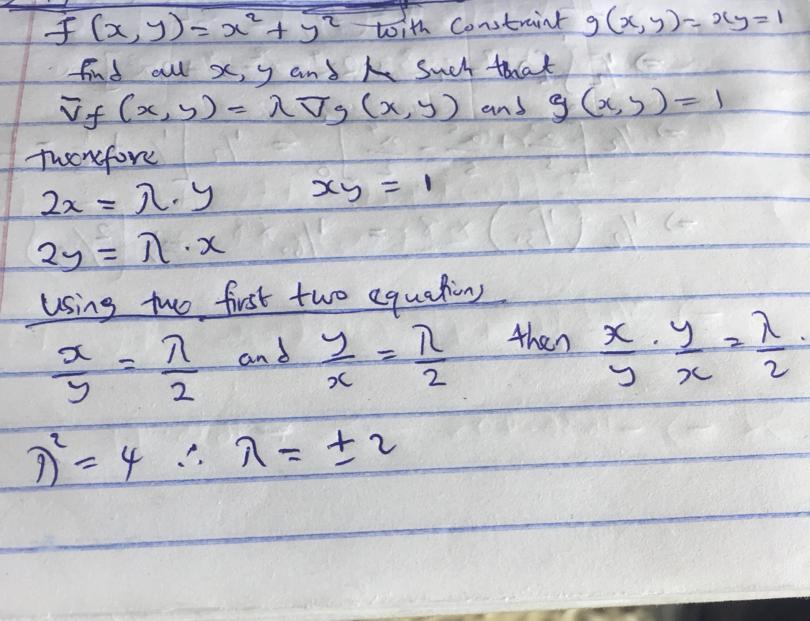 f (x, y) = x² + y² with constraint g(x, y) = xy = 1
find all x, y and λ such that
∇f (x, y) = λ ∇g (x, y) and g (x, y) = 1
therefore
2x = λ. y xy = 1
2y = λ · x
Using two first two equations
x/y = λ/2 and y/x = λ/2 then x/y . y/x = λ/2 .
λ² = 4 ∴ λ = ± 2